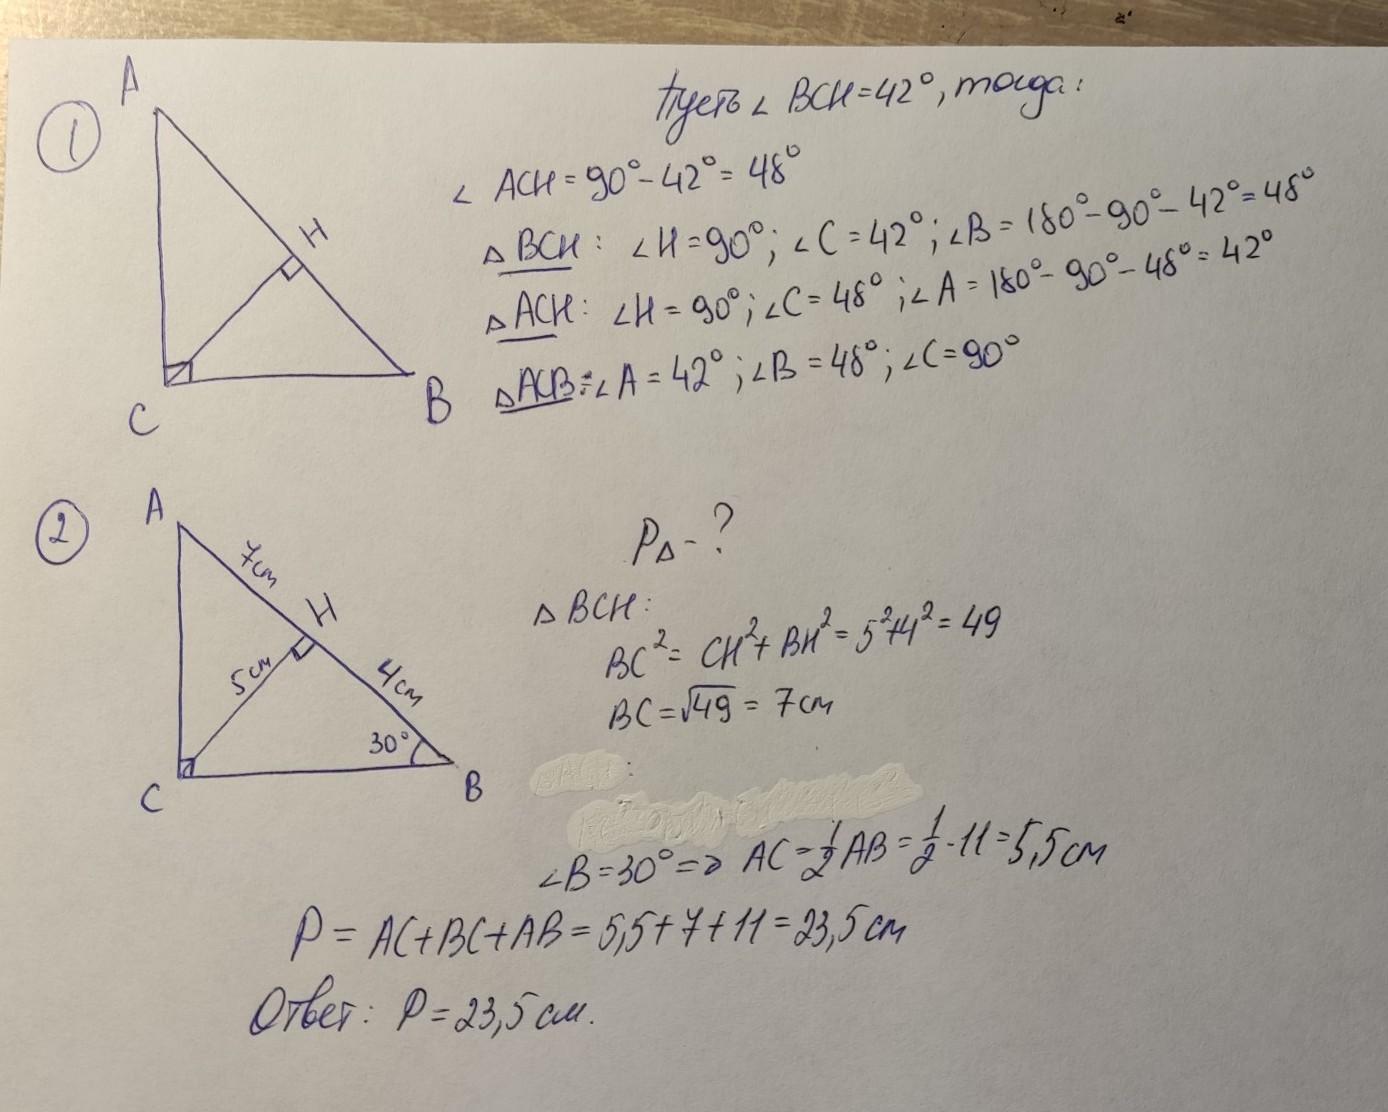 1
A
Пусть ∠ BCH = 42°, тогда:
∠ ACH = 90° - 42° = 48°
H
△ BCH: ∠H = 90°; ∠C = 42°; ∠B = 180° - 90° - 42° = 48°
△ ACH: ∠H = 90°; ∠C = 48°; ∠A = 180° - 90° - 48° = 42°
△ ACB: ∠A = 42°; ∠B = 48°; ∠C = 90°
C
B
2
A
P△ - ?
7см
H
△ BCH:
BC² = CH² + BH² = 5² + 4² = 49
5см
4см
BC = √49 = 7см
30°
C
B
:
∠B = 30° => AC = 1/2 AB = 1/2 · 11 = 5,5см
P = AC + BC + AB = 5,5 + 7 + 11 = 23,5см
Ответ: P = 23,5 см.